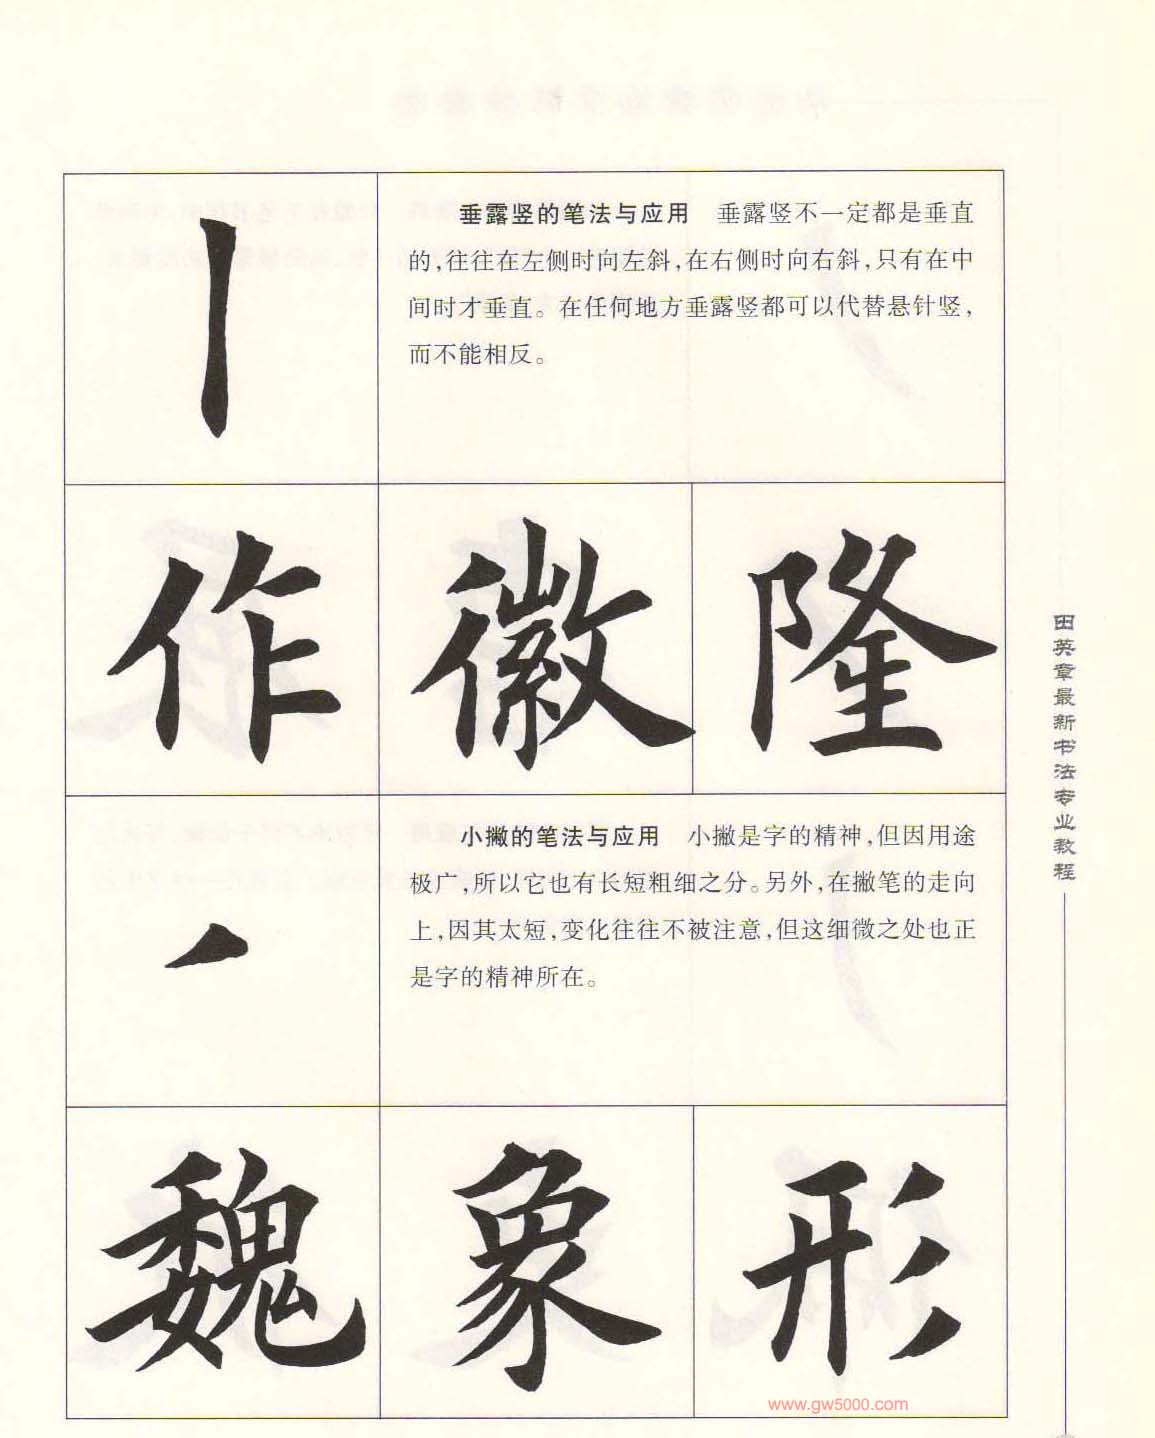 垂露竖的笔法与应用　垂露竖不一定都是垂直
的,往往在左侧时向左斜,在右侧时向右斜,只有在中
间时才垂直。在任何地方垂露竖都可以代替悬针竖,
而不能相反。
作 徽 隆
小撇的笔法与应用　小撇是字的精神,但因用途
极广,所以它也有长短粗细之分。另外,在撇笔的走向
上,因其太短,变化往往不被注意,但这细微之处也正
是字的精神所在。
魏 象 形
田英章最新书法专业教程
www.gw5000.com